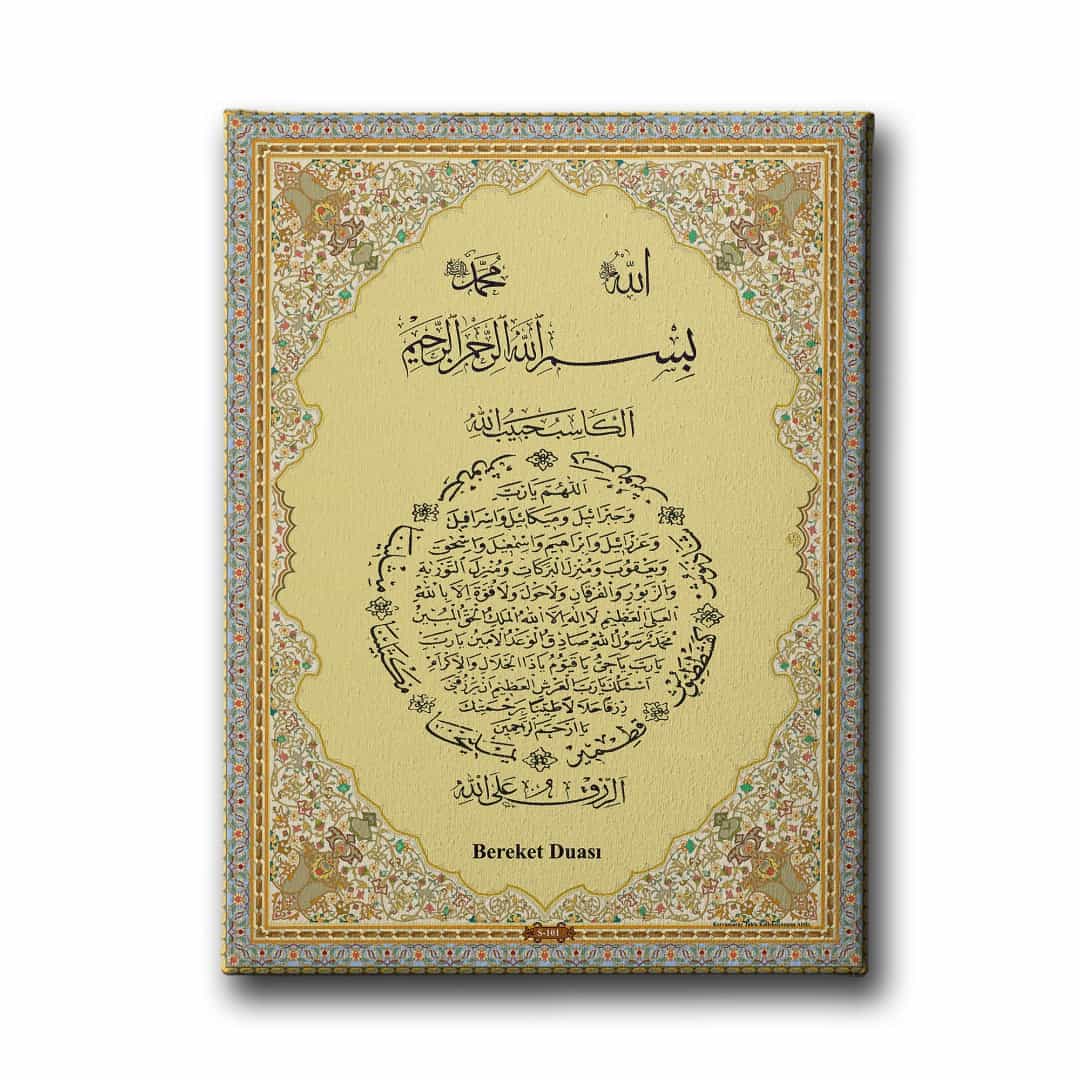 اللّٰه جل جلاله
محمّد صلى الله عليه وسلم
بِسْمِ اللّٰهِ الرَّحْمٰنِ الرَّحِيمِ
اَلْكَاسِبُ حَبِيبُ اللّٰهِ
اَللّٰهُمَّ يَارَبَّ
وَجَبْرَائِيلَ وَمِيكَائِيلَ وَاِسْرَافِيلَ
وَعَزْرَائِيلَ وَاِبْرَاهِيمَ وَاِسْمٰعِيلَ وَاِسْحٰقَ
وَيَعْقُوبَ وَمُنْزِلَ الْبَرَكَاتِ وَمُنْزِلَ التَّوْرٰيةِ
وَالزَّبُورِ وَالْفُرْقَانِ وَلَاحَوْلَ وَلَاقُوَّةَ اِلَّا بِاللّٰهِ
الْعَلِىِّ الْعَظِيمِ لَا اِلٰهَ اِلَّا اللّٰهُ الْمَلِكُ الْحَقُّ الْمُبِينُ
مُحَمَّدٌ رَسُولُ اللّٰهِ صَادِقُ الْوَعْدِ الْاَمِينُ يَارَبِّ
يَارَبِّ يَاحَىُّ يَاقَيُّومُ يَاذَا الْجَلَالِ وَالْاِكْرَامِ
اَسْئَلُكَ يَارَبَّ الْعَرْشِ الْعَظِيمِ اَنْ تَرْزُقَنِى
رِزْقًا حَلَالًا طَيِّبًا بِرَحْمَتِكَ
يَا اَرْحَمَ الرَّاحِمِينَ
يمليخا
مكثلينا
مثلينا
مرنوش
كفشططيوش
قطمير
اَلرِّزْقُ عَلَى اللّٰهِ
Bereket Duası
S-101